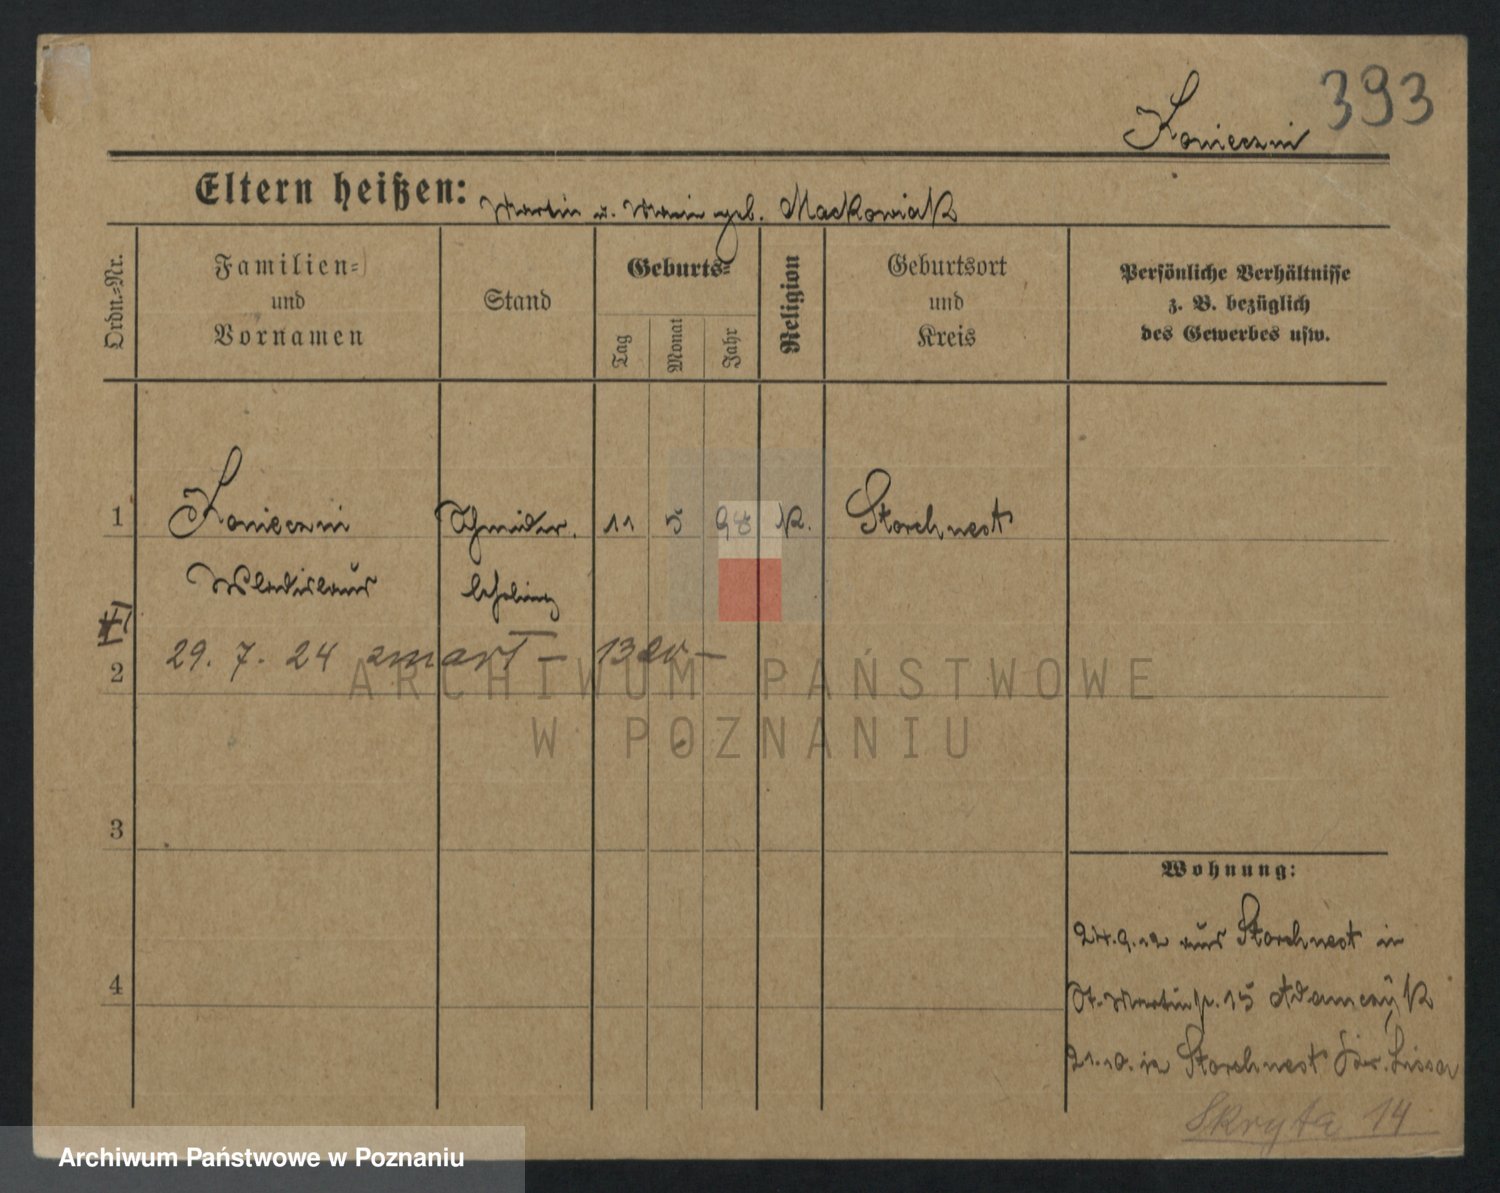 393
Konieczni
Eltern heißen: Martin u. Marie geb. Mackowiak
Ordn.-Nr.
Familien- und Vornamen
Stand
Geburts-
Tag
Monat
Jahr
Religion
Geburtsort und Kreis
Persönliche Verhältnisse z. B. bezüglich des Gewerbes usw.
1 Konieczni Schneider. 11 5 98 K. Storchnest
Wladislaus lehrling
2 29. 7. 24 zmarł –
3
4
Wohnung:
24.9.12 aus Storchnest in
St. Martinstr. 15 Adamczyk
21.10.12 Storchnest Kr. Lissa
Skryta 14
ARCHIWUM PAŃSTWOWE
W POZNANIU
Archiwum Państwowe w Poznaniu